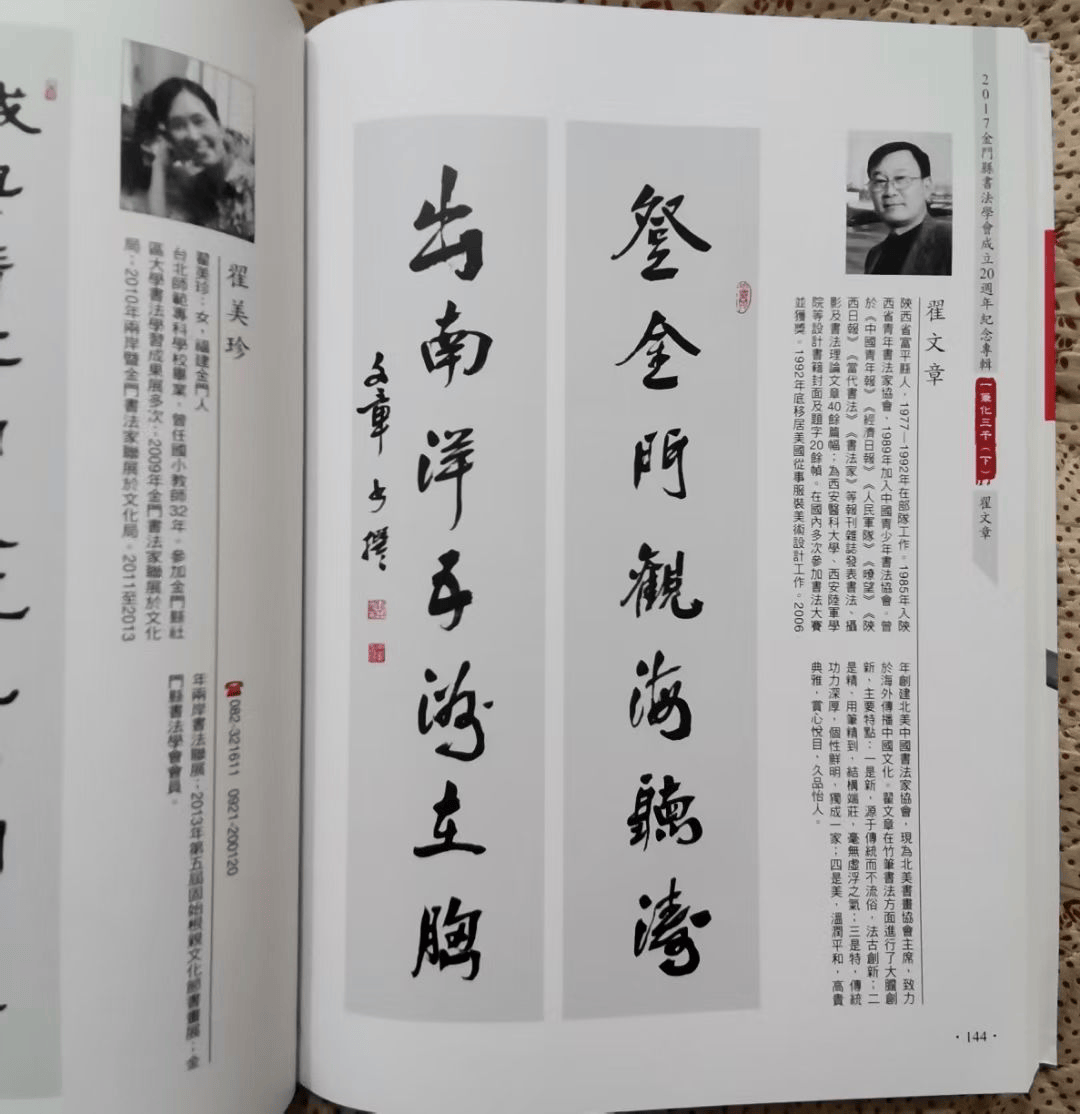 2017金門縣書法學會成立20週年紀念專輯
一筆化三千（下）
翟文章
翟文章
陝西省富平縣人，1977—1992年在部隊工作。1985年入陝
西省青年書法家協會，1989年加入中國青少年書法協會。曾
於《中國青年報》《經濟日報》《人民軍隊》《瞭望》《陝
西日報》《當代書法》《書法家》等報刊雜誌發表書法、攝
影及書法理論文章40餘篇幅；為西安醫科大學、西安陸軍學
院等設計書籍封面及題字20餘幀。在國內多次參加書法大賽
並獲獎。1992年底移居美國從事服裝美術設計工作。2006
年創建北美中國書法家協會，現為北美書畫協會主席，致力
於海外傳播中國文化。翟文章在竹筆書法方面進行了大膽創
新，主要特點：一是新，源于傳統而不流俗，法古創新；二
是精，用筆精到，結構端莊，毫無虛浮之氣；三是特，傳統
功力深厚，個性鮮明，獨成一家；四是美，溫潤平和，高貴
典雅，賞心悅目，久品怡人。
登金門觀海聽濤
出南洋五洲在胸
文章書撰
·144·
翟美珍
082-321611 0921-200120
翟美珍：女，福建金門人
台北師範專科學校畢業，曾任國小教師32年。參加金門縣社
區大學書法學習成果展多次，2009年金門書法家聯展於文化
局。2010年兩岸暨金門書法家聯展於文化局。2011至2013
年兩岸書法聯展，2013年第五屆固始根親文化節書畫展，金
門縣書法學會會員。